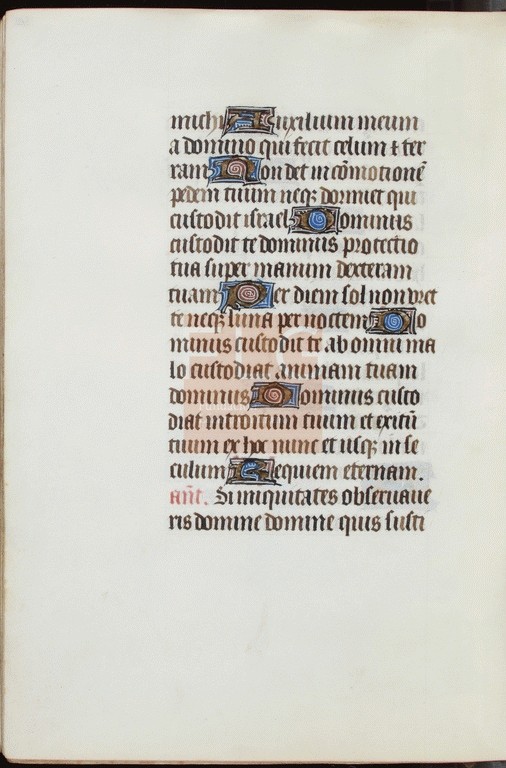 michi Auxilium meum
a domino qui fecit celum ⁊ ter
ram Non det in cōmotionē
pedem tuum neqꝫ dormiet qui
custodit israel Dominus
custodit te dominus protectio
tua super manum dexteram
tuam Per diem sol non vret
te neqꝫ luna per noctem Do
minus custodit te ab omni ma
lo custodiat animam tuam
dominus Dominus custo
diat introitum tuum et exitū
tuum ex hoc nunc et usqꝫ in se
culum Requiem eternam.
añt. Si iniquitates obseruaue
ris domine domine quis susti